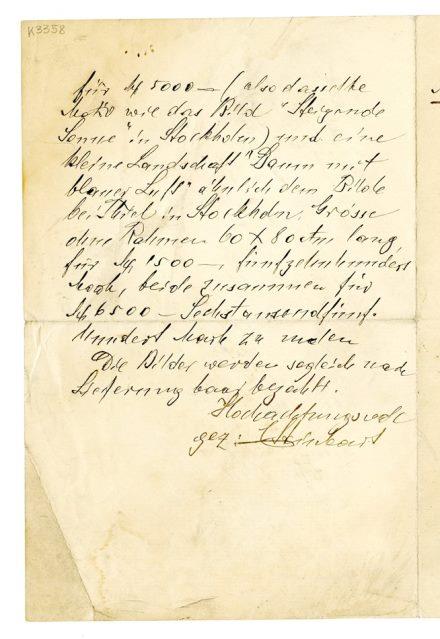 K3358
für M 5000 — (also dasselbe
Motiv wie das Bild "Steigende
Sonne" in Stockholm) und eine
kleine Landschaft "Baum mit
blauer Luft" ähnlich dem Bilde
bei Thiel in Stockholm, Grösse
ohne Rahmen 60 X 80 ctm lang,
für M 1500 —, fünfzehnhundert
Mark, beide zusammen für
M 6500 — Sechstausendfünf-
hundert Mark zu
Die Bilder werden sogleich nach
Lieferung baar bezahlt.
Hochachtungsvoll
gez: